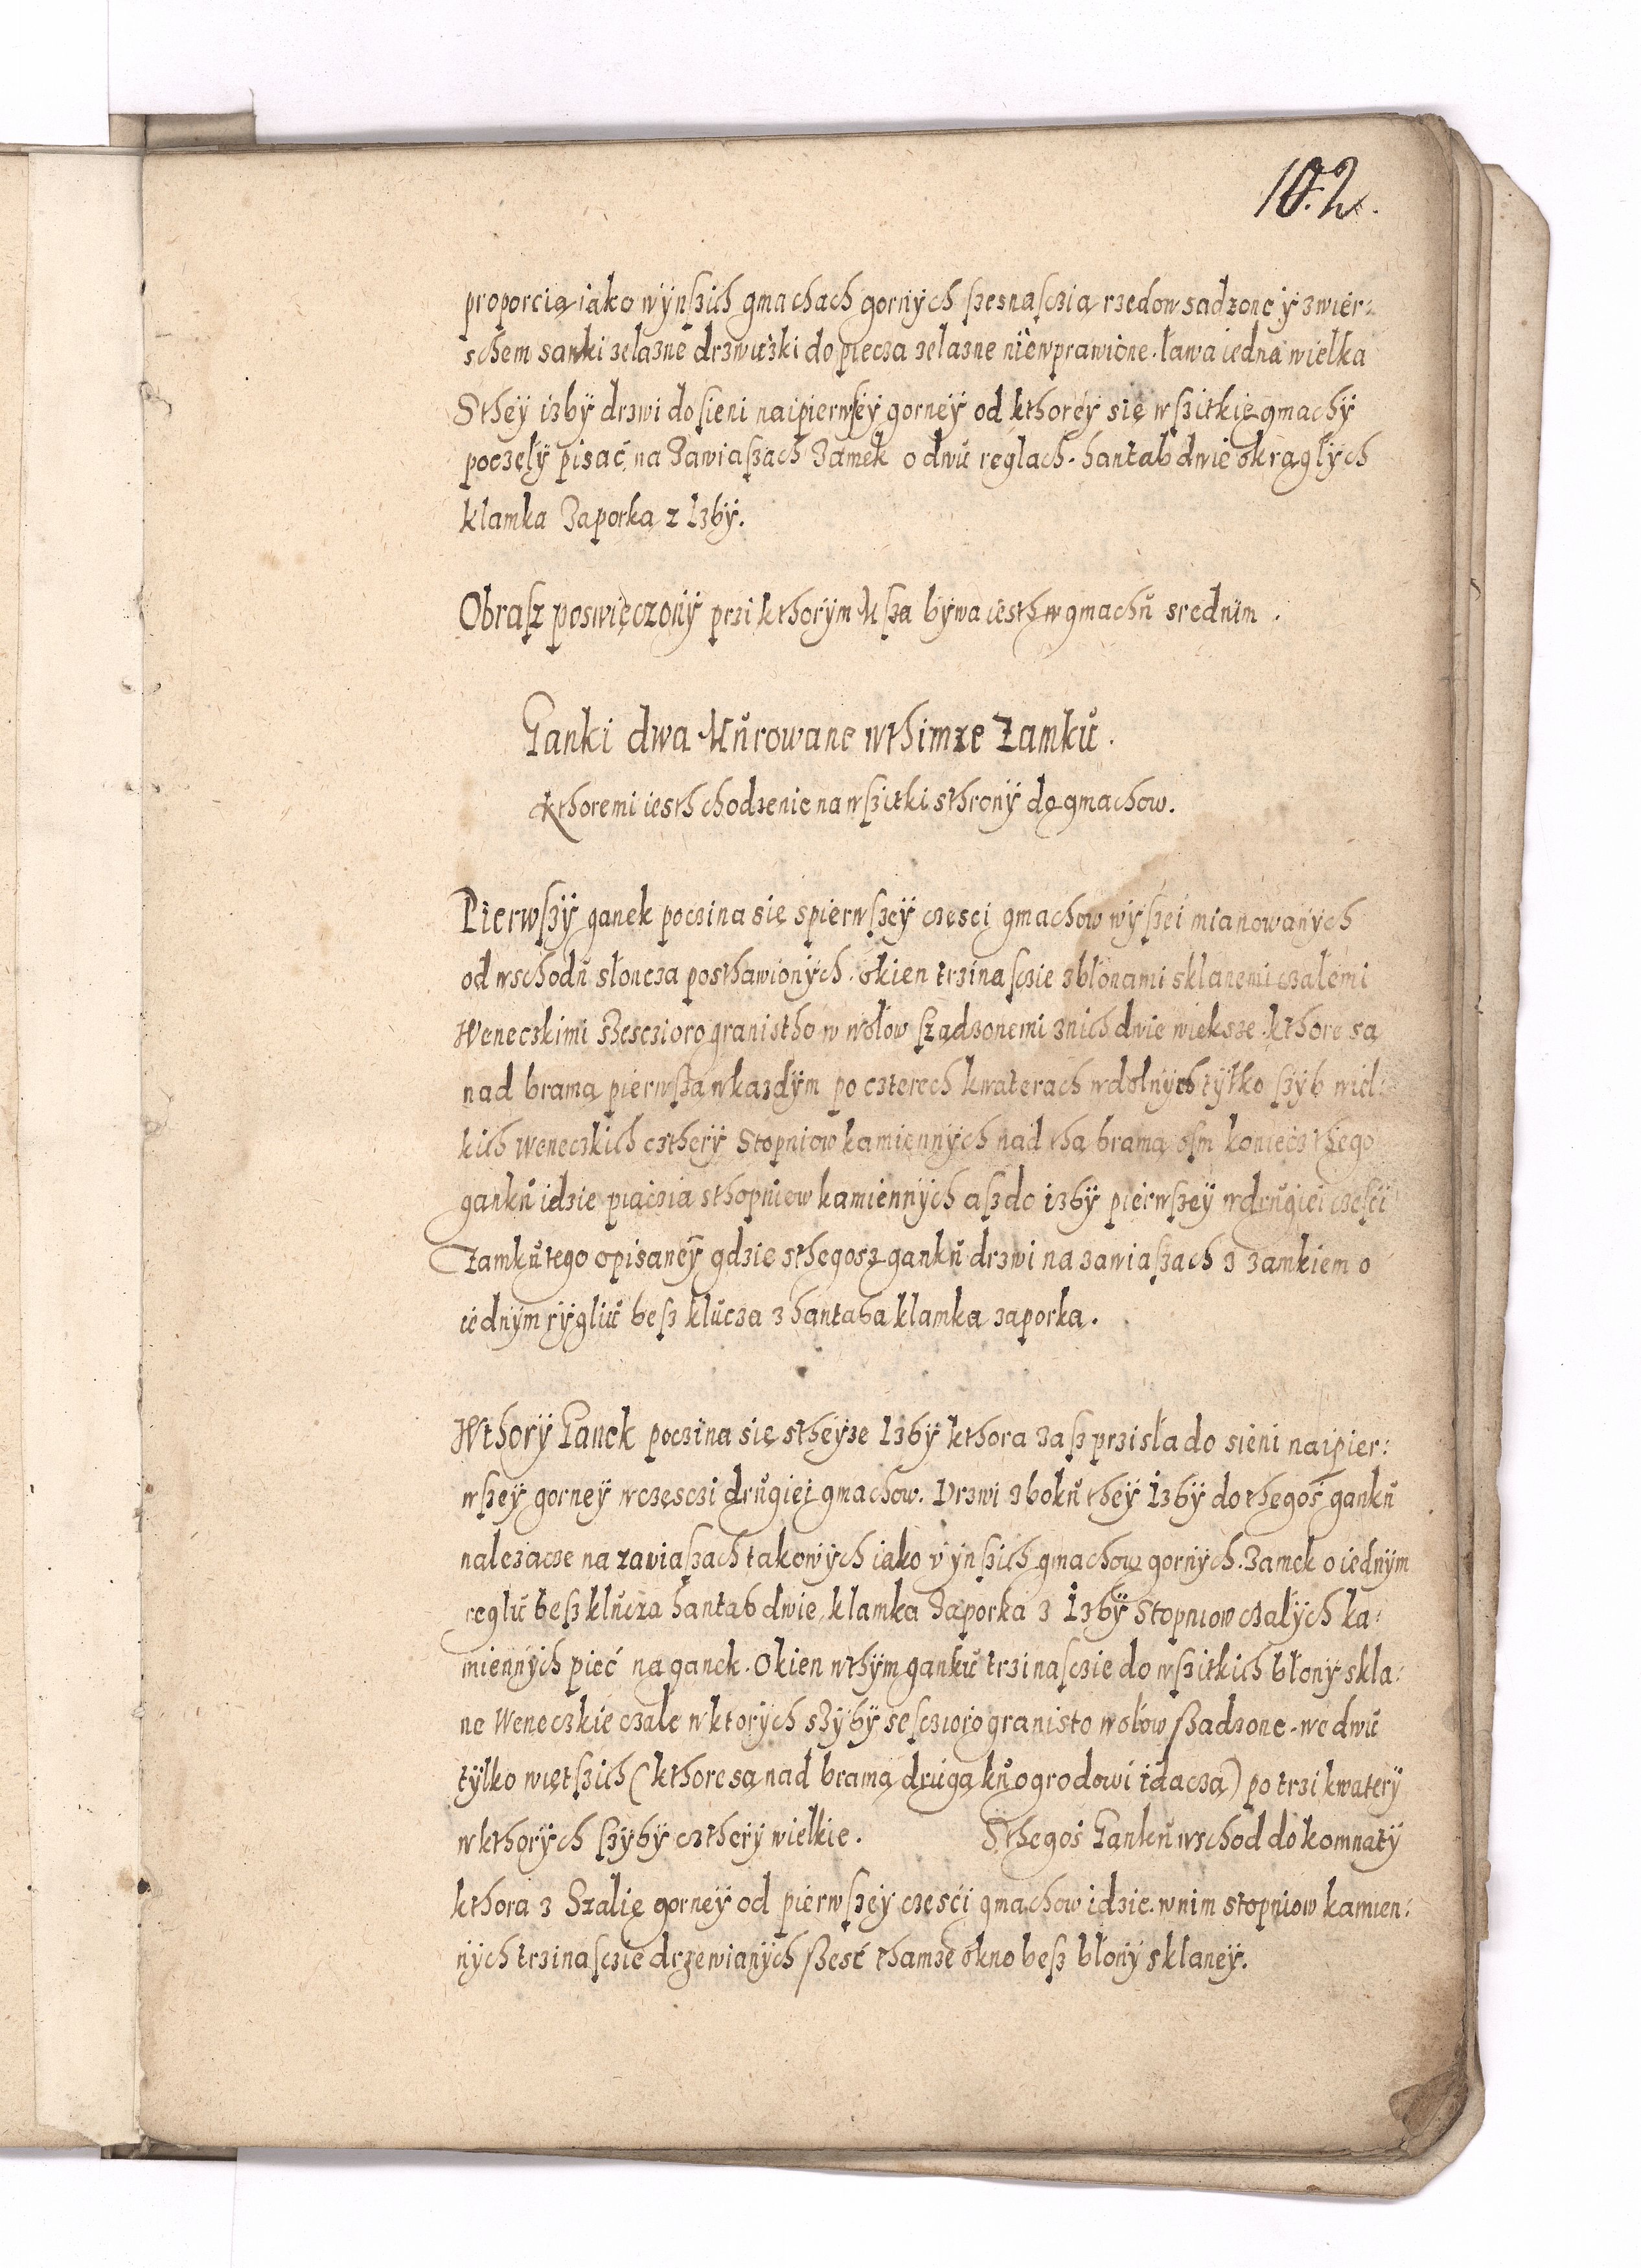 102.
proporcią iako wÿnſzich gmachach gornÿch ſzesnaſczią rzedow sadzone ÿ zwier:
schem sanki zelazne drzwiczki do piecza zelazne niewprawione. ława iedna wielka
Stheÿ izbÿ drzwi do ſieni naipierwſzeÿ gorneÿ od kthoreÿ się wſzitkie gmachÿ
poczęlÿ pisać, na Zawiaſzach Zamek o dwu reglach. hantab dwie okrągłÿch
klamka Zaporka z Izbÿ.
Obraſz poswięczonÿ przi kthorÿm Mſza bÿwa iesth w gmachu srednim.
Ganki dwa Murowane wthimze Zamku.
kthoremi iesth chodzenie na wſzitki sthronÿ do gmachow.
Pierwſzÿ ganek poczina się spierwſzeÿ częsci gmachow wÿſzei mianowanÿch
od wschodu słoncza posthawionÿch. okien trzinaſczie zbłonami sklanemi czałemi
Weneczkimi szesczioro granistho w wołow ſządzonemi znich dwie wieksze kthore są
nad bramą pierwſzą wkazdÿm po czterech kwaterach wdolnÿch tÿlko ſzÿb wiel:
kich weneczkich czterÿ Stopniow kamiennÿch nad thą bramą oſm koniecz thego
ganku idzie piączia sthopniow kamiennÿch aſz do izbÿ pierwſzeÿ wdrugiei częſci
Zamku tego opisaneÿ gdzie sthegosz ganku drzwi na zawiaſzach z zamkiem o
iednÿm rÿgliu beſz klucza z hantaba klamka zaporka.
Wthorÿ Ganek poczina się stheÿze Izbÿ kthora zaſz przisła do sieni naipier:
wſzeÿ gorneÿ wczęsczi drugiei gmachow. Drzwi zboku theÿ Izbÿ do thegoś ganku
nalezacze na zawiaſzach takowÿch iako v ÿnſzich gmachow gornÿch. Zamek o iednÿm
reglu beſz klucza hantab dwie, klamka Zaporka z Izbÿ Stopniow czałÿch ka:
miennÿch pięć na ganek. Okien wthÿm ganku trzinaſczie do wſzitkich błonÿ skla:
ne Weneczkie czałe wktorÿch szÿbÿ seſczioro granisto wołow ſzadzone. we dwu
tÿlko więtſzich (kthore są nad bramą drugą ku ogrodowi idacza) po trzi kwaterÿ
wkthorÿch ſzÿbÿ cztherÿ wielkie. Sthegoś Ganku wschod do komnatÿ
kthora z Szalię gorneÿ od pierwſzeÿ częsci gmachow idzie. wnim stopniow kamien:
nÿch trzinaſczie drzewianÿch ſzesć thamze okno beſz błonÿ sklaneÿ.